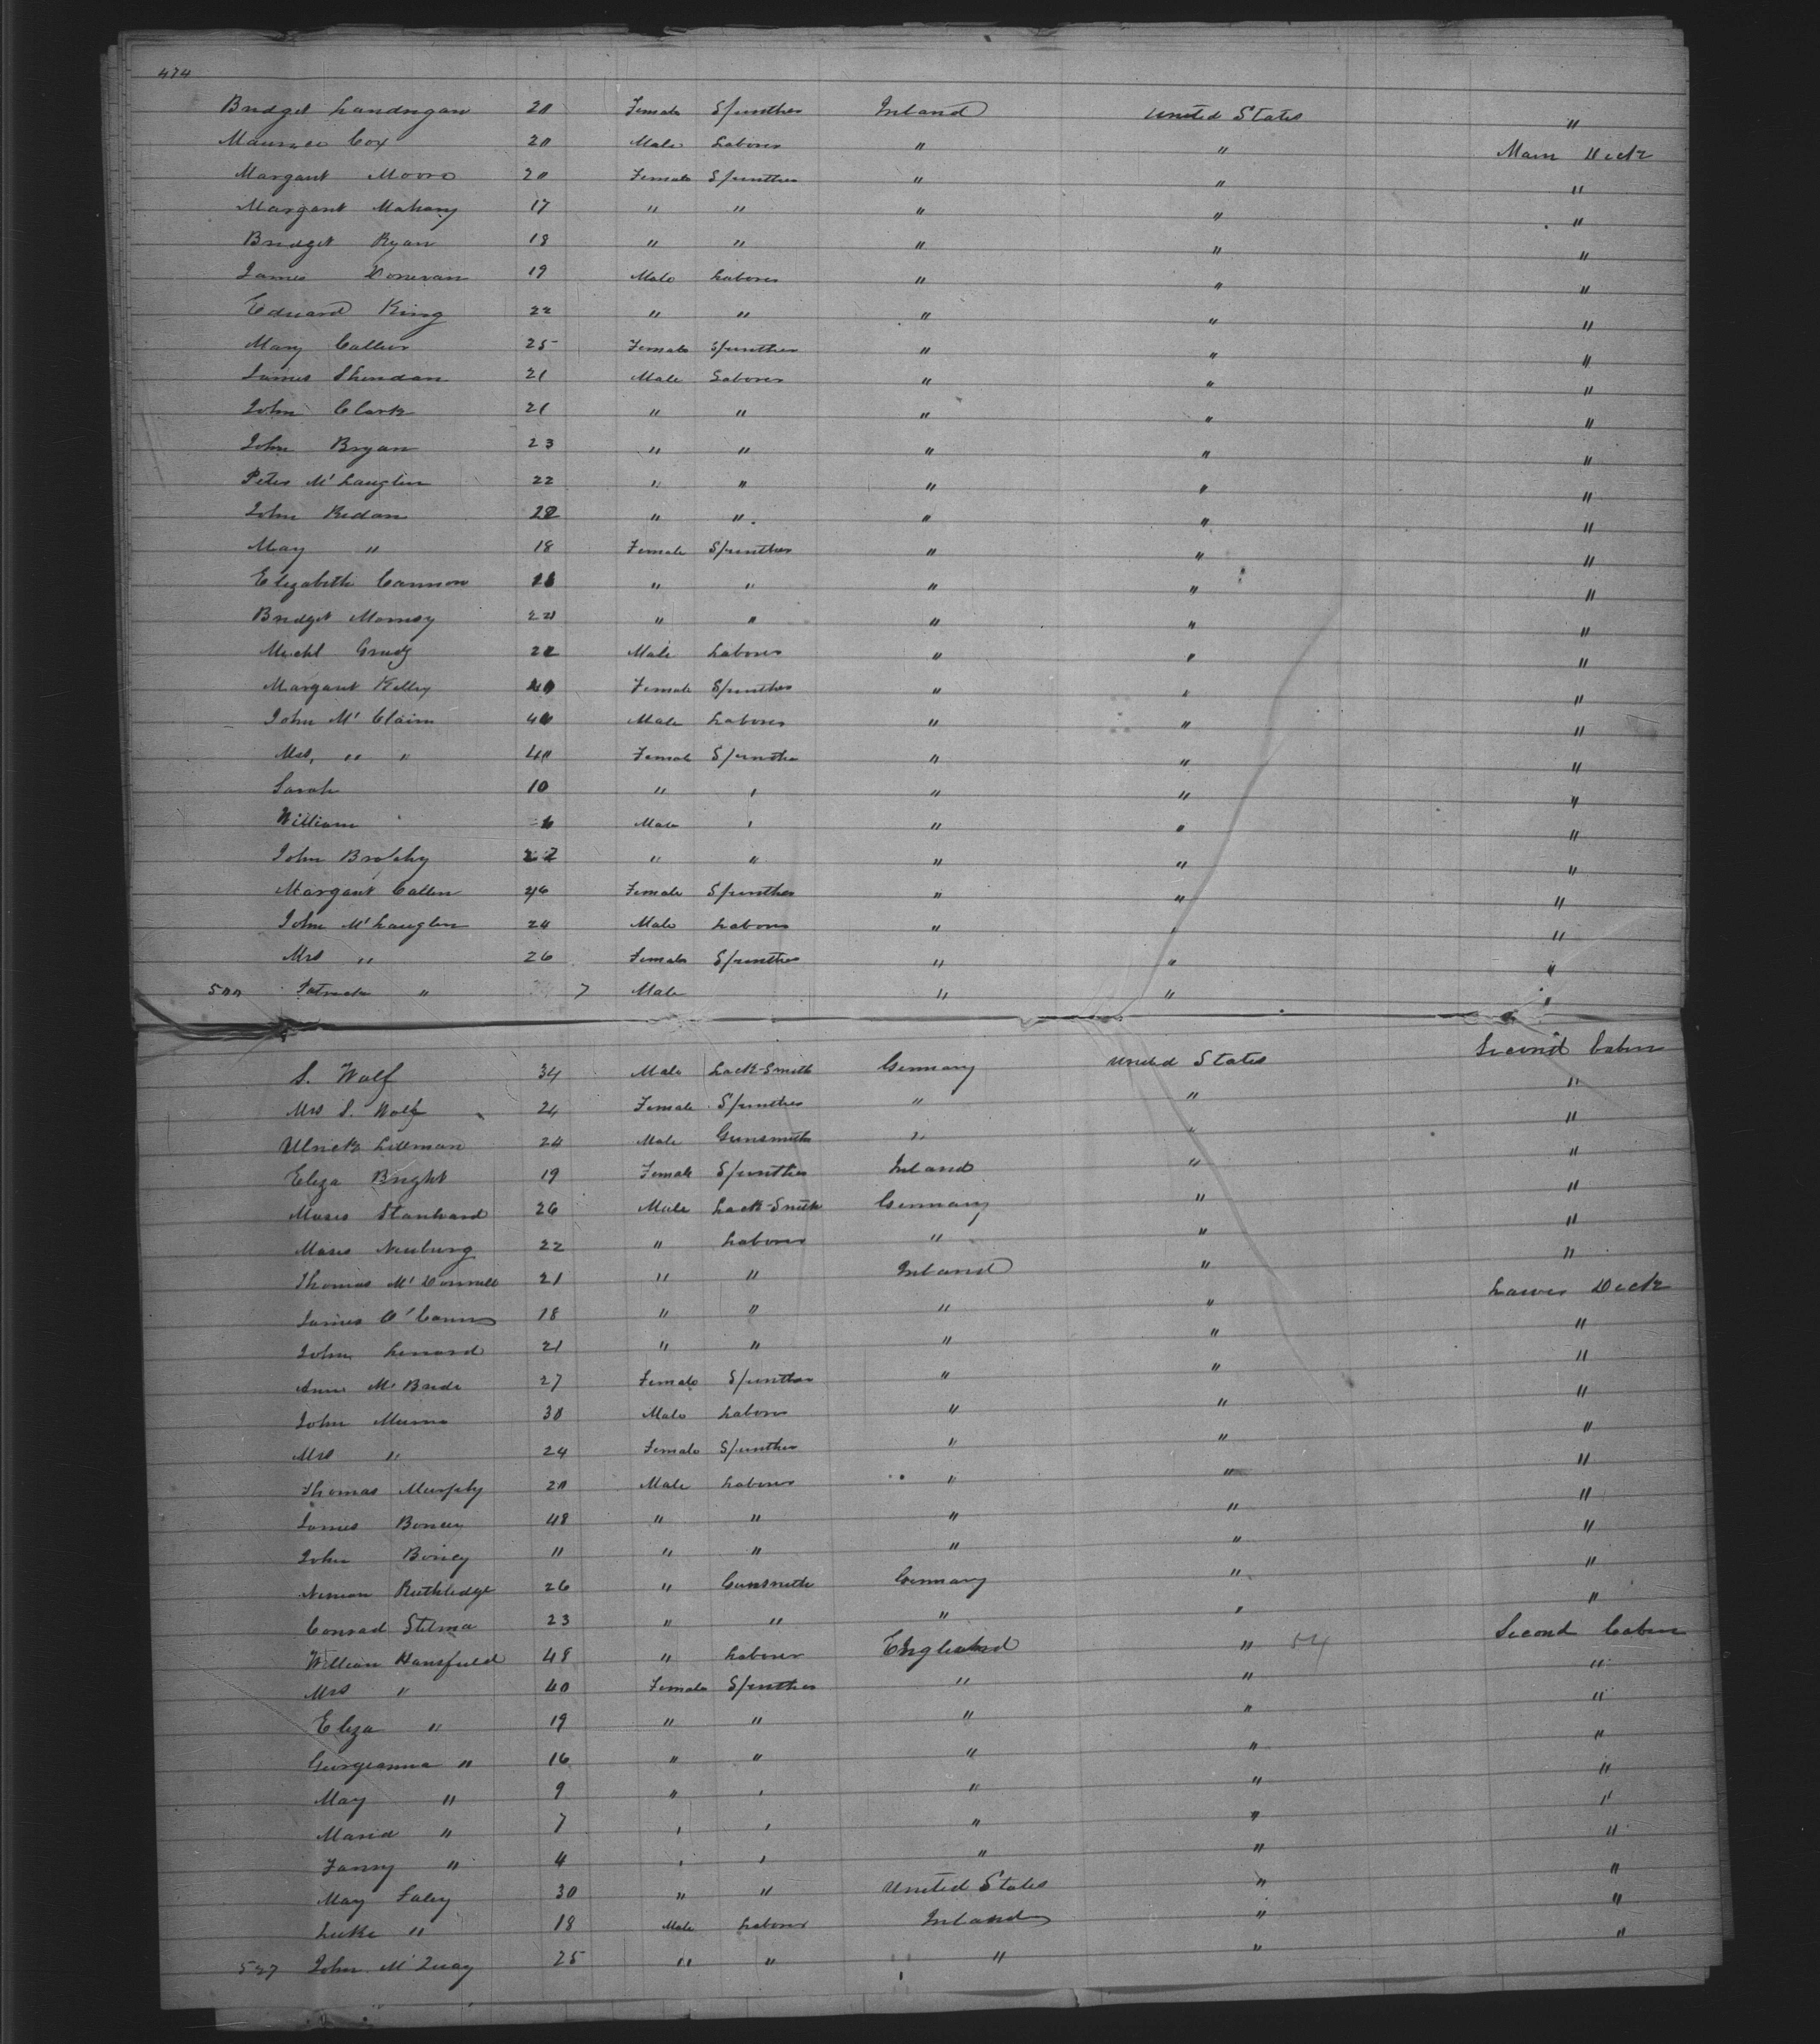 474
Bridget Landrigan 20 Female Spinster Ireland United States "
Maurice Cox 20 Male Laborer " " Main Deck
Margaret Moore 20 Female Spinster " " "
Margaret Mahony 17 " " " " "
Bridget Ryan 18 " " " " "
James Donevan 19 Male Laborer " " "
Edward King 22 " " " " "
Mary 25 Female Spinster " " "
James Sheridan 21 Male Laborer " " "
John Clark 21 " " " " "
John Bryan 23 " " " " "
Peter McLauglin 22 " " " " "
John Redan " " " " "
May " 18 Female Spinster " " "
Elizabeth Cannon " " " " "
Bridget " " " " "
Michl Male Laborer " " "
Margaret Kelly Female Spinster " " "
John McClaim 40 Male Laborer " " "
Mrs, " " 40 Female Spinster " " "
Sarah 10 " " " " "
William Male " " " "
John Brophy 22 " " " " "
Margaret Callen Female Spinster " " "
John McLauglin 24 Male Laborer " " "
Mrs " 26 Female Spinster " " "
500 Patrick " 7 Male " " "
S. Wolf 34 Male Lock-Smith Germany United States Second Cabin
Mrs S. Wolf 24 Female Spinster " " "
Ulrick 24 Male Gunsmith " " "
Eliza Bright 19 Female Spinster Ireland " "
Moses 26 Male Lock-Smith Germany " "
Moses Neuburg 22 " Laborer " " "
Thomas McDonnell 21 " " Ireland " "
James 18 " " " " Lower Deck
John Lennard 21 " " " " "
Ann McBride 27 Female Spinster " " "
John 30 Male Laborer " " "
Mrs " 24 Female Spinster " " "
Thomas Murphy 20 Male Laborer " " "
James 48 " " " " "
John 11 " " " " "
Ruthledge 26 " Gunsmith Germany " "
Conrad Stelma 23 " " " " "
William Hansfield 48 " Laborer England " 54 Second Cabin
Mrs " 40 Female Spinster " " "
Eliza " 19 " " " " "
Georgeanna " 16 " " " " "
May " 9 " " " " "
Maria " 7 " " " " "
Fanny " 4 " " " " "
May Faley 30 " " United States " "
Luke " 18 Male Laborer Ireland " "
527 John McQuay 25 " " " " "